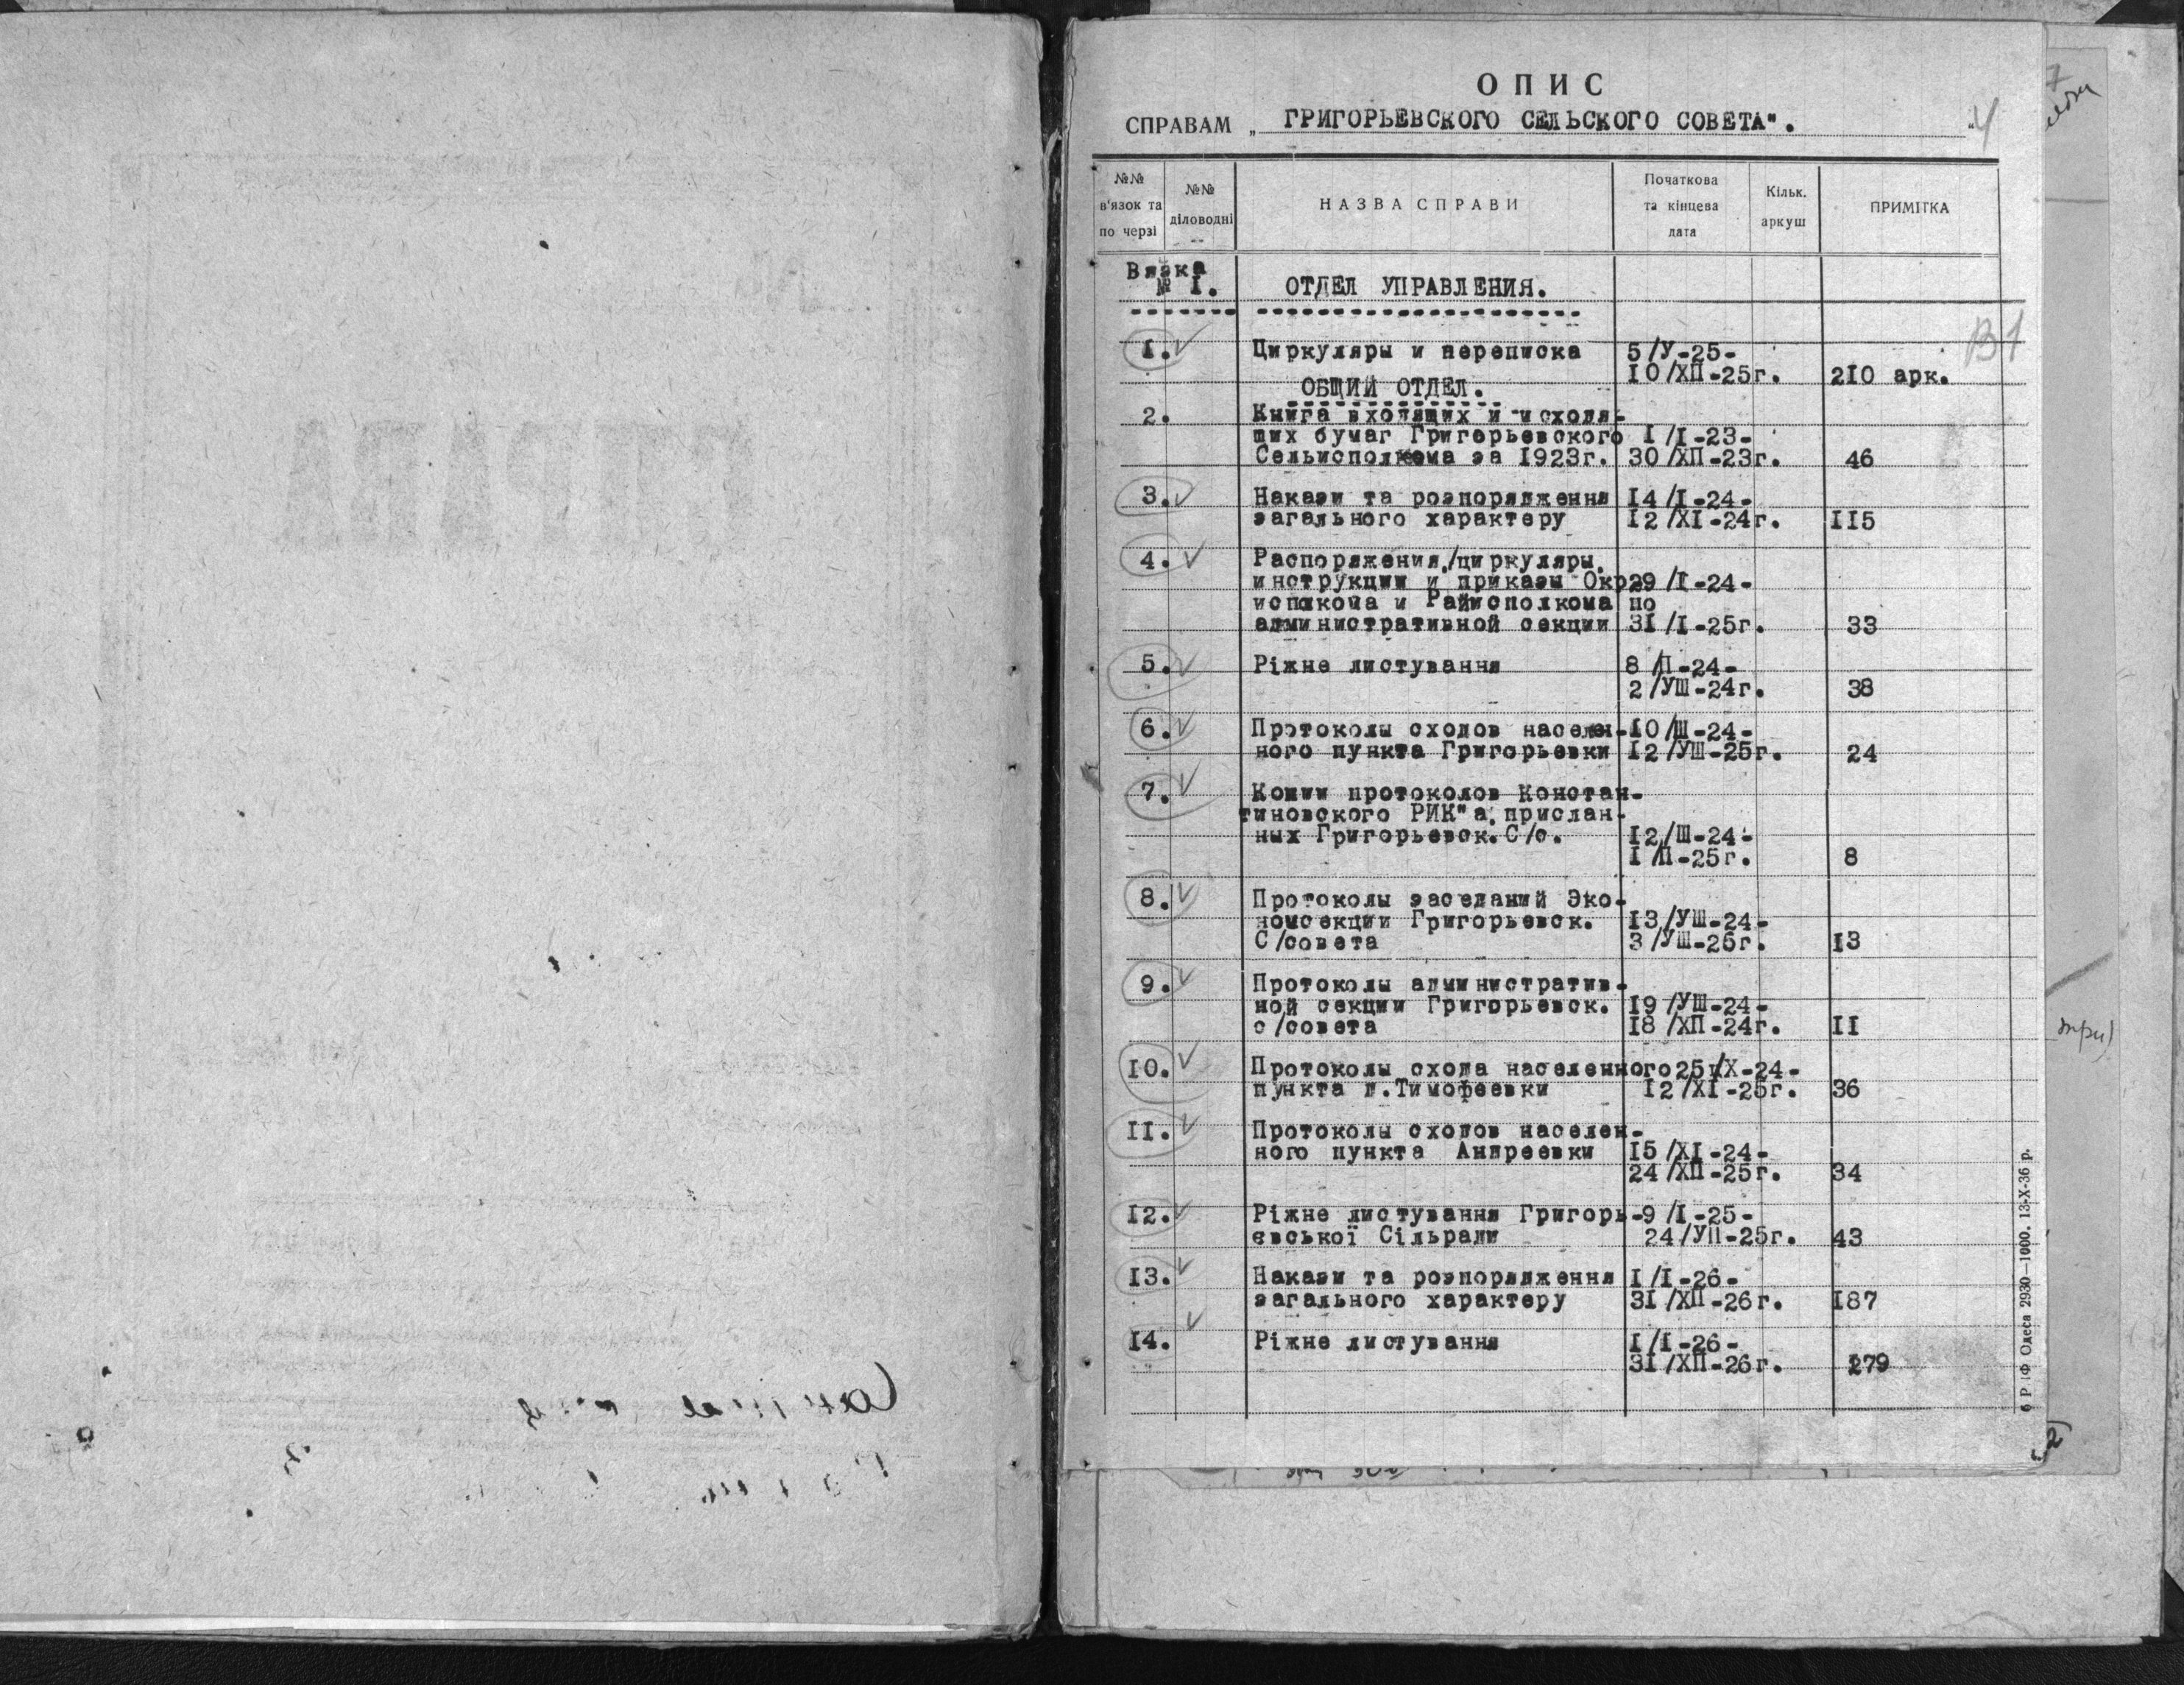 ОПИС
СПРАВАМ „ ГРИГОРЬЕВСКОГО СЕЛЬСКОГО СОВЕТА".
4
№№ в'язок та по черзі
№№ діловодні
НАЗВА СПРАВИ
Початкова та кінцева дата
Кільк. аркуш
ПРИМІТКА
Вязка
№ I. ОТДЕЛ УПРАВЛЕНИЯ.
В 1
1. Циркуляры и переписка 5/У-25-
10/ХП-25г. 210 арк.
ОБЩИЙ ОТДЕЛ.
2. Книга входящих и исходя-
щих бумаг Григорьевского I/I-23-
Сельисполкома за 1923г. 30/ХП-23г. 46
3. Накази та розпорядження 14/I-24-
загального характеру 12/XI-24г. 115
4. Распоряжения,/циркуляры,
инструкции и приказы Окр- 29/I-24-
исполкома и Райисполкома по
административной секции 31/I-25г. 33
5. Ріжне листування 8/П-24-
2/УШ-24г. 38
6. Протоколы сходов населен- 10/Ш-24-
ного пункта Григорьевки 12/УШ-25г. 24
7. Копии протоколов Констан-
тиновского РИК"а, прислан-
ных Григорьевск. С/с. 12/Ш-24-
I/П-25г. 8
8. Протоколы заседаний Эко-
номсекции Григорьевск. 13/УШ-24-
С/совета 3/УШ-25г. 13
9. Протоколы административ-
ной секции Григорьевск. 19/УШ-24-
с/совета 18/ХП-24г. 11
10. Протоколы схода населенного 25/X-24-
пункта д.Тимофеевки 12/XI-25г. 36
11. Протоколы сходов населен-
ного пункта Андреевки 15/XI-24-
24/ХП-25г. 34
12. Ріжне листування Григорь- 9/I-25-
євської Сільради 24/УП-25г. 43
13. Накази та розпорядження I/I-26-
загального характеру 31/ХП-26г. 187
14. Ріжне листування I/I-26-
31/ХП-26г. 279
Одеса 2930—1000. 13-X-36 р.